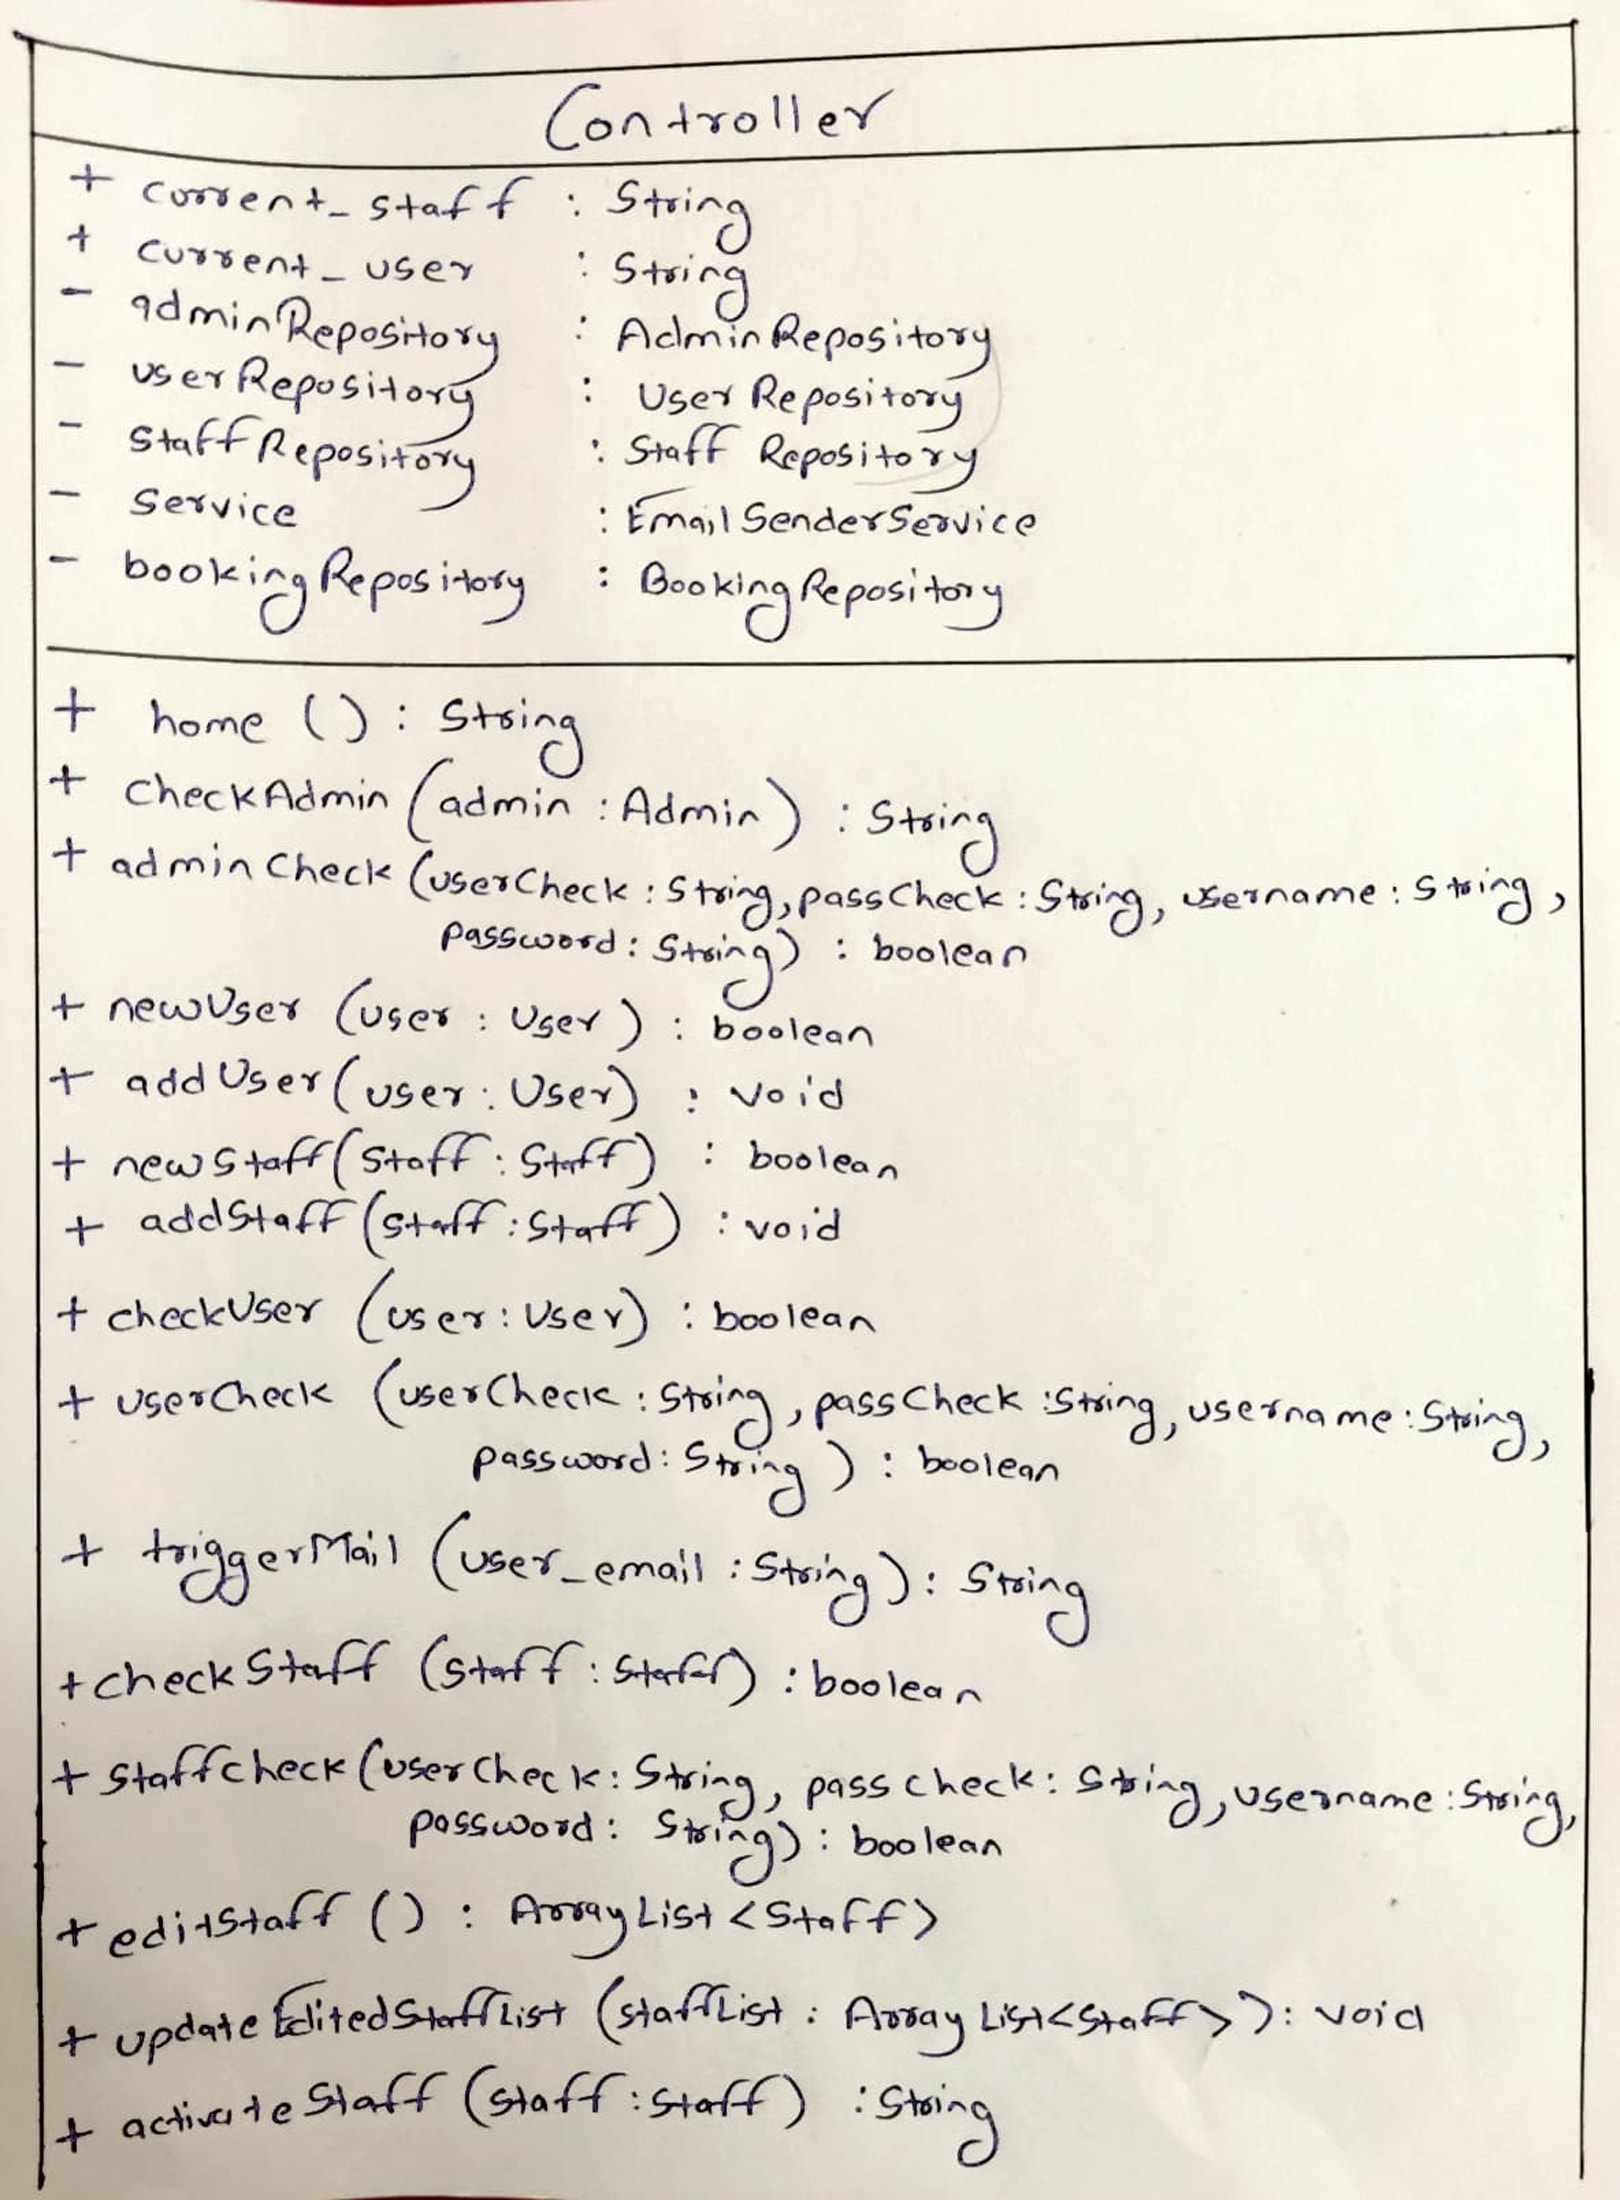 Controller
+ current_staff : String
+ current_user : String
- adminRepository : AdminRepository
- userRepository : UserRepository
- StaffRepository : Staff Repository
- Service : EmailSenderService
- bookingRepository : BookingRepository
+ home () : String
+ checkAdmin (admin : Admin) : String
+ adminCheck (userCheck : String, passCheck : String, username : String,
password : String) : boolean
+ newUser (user : User) : boolean
+ addUser (user : User) : void
+ newStaff (Staff : Staff) : boolean
+ addStaff (Staff : Staff) : void
+ checkUser (user : User) : boolean
+ userCheck (userCheck : String, passCheck : String, username : String,
password : String) : boolean
+ triggerMail (user_email : String) : String
+ checkStaff (Staff : Staff) : boolean
+ staffcheck (userCheck : String, pass check : String, username : String,
password : String) : boolean
+ editStaff () : ArrayList <Staff>
+ updateEditedStaffList (staffList : ArrayList<Staff>) : void
+ activateStaff (Staff : Staff) : String